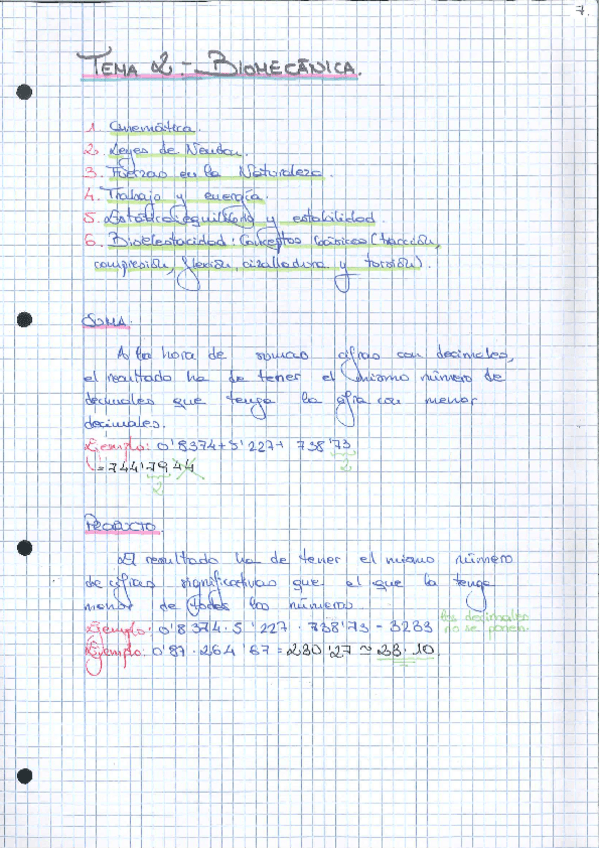 7.
TEMA 2.- BIOMECÁNICA.
1. Cinemática.
2. Leyes de Newton.
3. Fuerzas en la Naturaleza.
4. Trabajo y energía.
5. Estática: equilibrio y estabilidad.
6. Bioelasticidad: Conceptos básicos (tracción,
compresión, flexión, cizalladura y torsión).
SUMA.
A la hora de sumar cifras con decimales,
el resultado ha de tener el mismo número de
decimales que tenga la cifra con menor
decimales.
Ejemplo: 0'8374+5'227+ 738'73
= 744'7944
2
2
PRODUCTO.
El resultado ha de tener el mismo número
de cifras significativas que el que la tenga
menor de todos los números.
Ejemplo: 0'8374·5'227·738'73 = 3233 los decimales
no se ponen.
Ejemplo: 0'87·264'67=230'27≈23·10